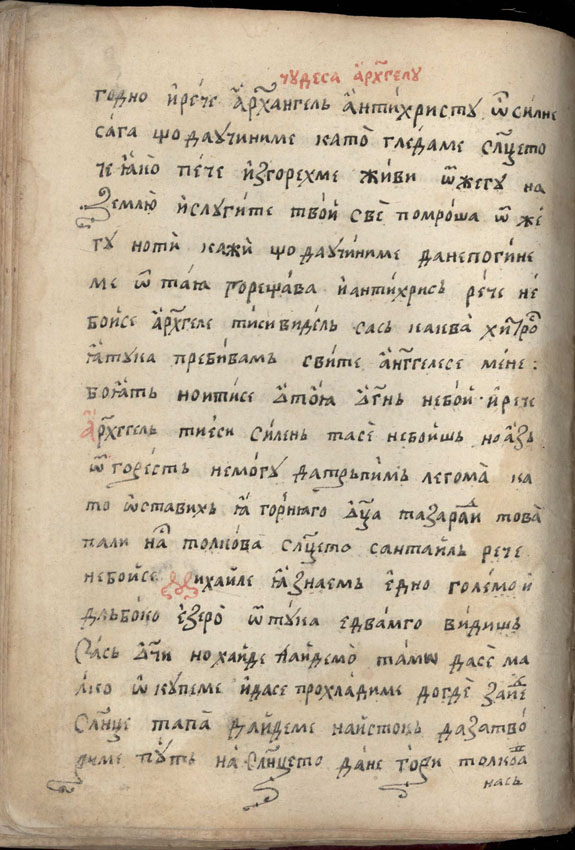 чꙋдеса а҆рх҃гелꙋ
годно и҆рече а҆рх҃ангель а҆нтихристꙋ ѿ силне
сага що даꙋчиниме като̀ гледаме сл҃нцето
че ꙗ҆ко пече изгорехме живи ѿ жегꙋ на
землю̀ и҆слꙋгите твои све̏ помроша ѿ же
гꙋ ноти кажи що даꙋчиниме данепогине
ме ѿ таꙗ горещава и҆антихрись рече не
бойсе а҆рх҃геле тисивидель сась каква хитро
ꙗ҆тꙋка пребивамь свите а҆нг҃гелесе мене :
боꙗть нотисе ѿтоꙗ ѻ҆гнь небой· и҆рече
а҆рх҃ггель тиеси силень тасе небоишь но азь
ѿ горесть немогꙋ датрьпимь легома̀ ка
то ѡ҆ставихь ꙗ҆ горнꙗго ѿца тазаради това
пали на толкова сл҃нцето сантаиль рече
небойсе михаиле ꙗ҆ знаемь едно големо и
дльбоко езеро̀ ѿтꙋка едвамго видишь
сась ѻ҆чи но хайде найдемо̀ тамѡ дасе ма
лко ѡ҆кꙋпеме идасе прохладиме догде зайде
сл҃нце тапа̀ дайдеме наистокь дазатво
риме пꙋть на сл҃нцето дане гори толкова
нась